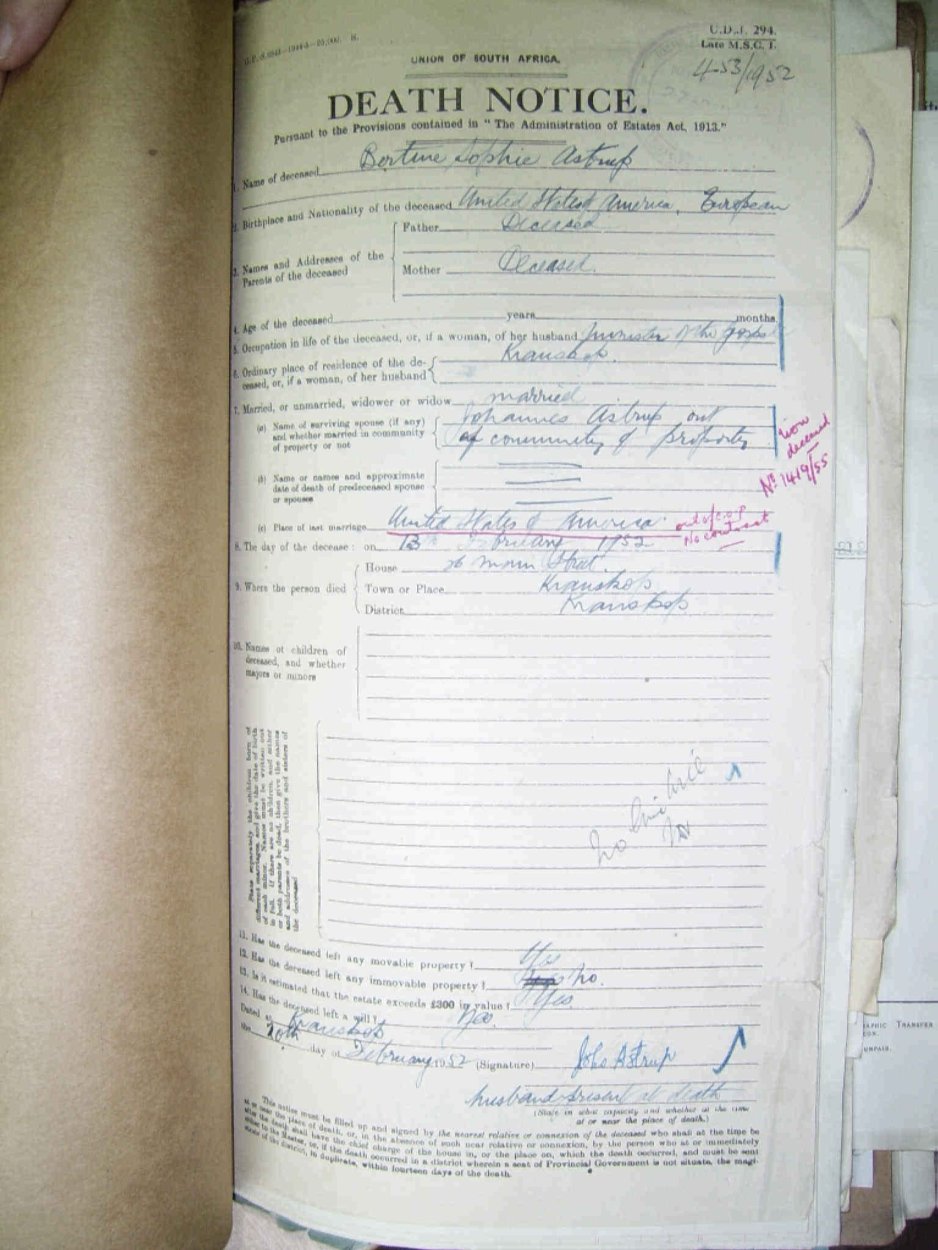 U.D.J. 294.
Late M.S.C. 1.
453/1952
UNION OF SOUTH AFRICA.
DEATH NOTICE.
Pursuant to the Provisions contained in "The Administration of Estates Act, 1913."
1. Name of deceased Bertine Sophie Astrup
2. Birthplace and Nationality of the deceased United States of America, European
3. Names and Addresses of the Parents of the deceased
Father Deceased
Mother Deceased.
4. Age of the deceased years months
5. Occupation in life of the deceased, or, if a woman, of her husband Minister of the gospel
6. Ordinary place of residence of the deceased, or, if a woman, of her husband Kranskop.
7. Married, or unmarried, widower or widow married
(a) Name of surviving spouse (if any) and whether married in community of property or not
Johannes Astrup out
of community of property
now deceased
No. 1419/55
(b) Name or names and approximate date of death of predeceased spouse or spouses
(c) Place of last marriage United States of America
out of c.o.p
No contract
8. The day of the decease: on 13th February 1952
9. Where the person died
House 26 Main Street.
Town or Place Kranskop
District Kranskop.
10. Names of children of deceased, and whether majors or minors
Place separately the children born of different marriages, and give the date of birth of each minor. Names must be written out in full. If there are no children, and either or both parents be dead, then give the names and addresses of the brothers and sisters of the deceased
No
11. Has the deceased left any movable property? Yes
12. Has the deceased left any immovable property? No.
13. Is it estimated that the estate exceeds £300 in value? Yes
14. Has the deceased left a will? Yes.
Dated at Kranskop
the 20th day of February 1952 (Signature) Johs Astrup
husband present at death
(State in what capacity and whether at the time at or near the place of death.)
This notice must be filled up and signed by the nearest relative or connexion of the deceased who shall at the time be
at or near the place of death, or, in the absence of such near relative or connexion, by the person who at or immediately
after the death shall have the chief charge of the house in, or the place on, which the death occurred, and must be sent
either to the Master, or, if the death occurred in a district wherein a seat of Provincial Government is not situate, the magi-
strate of the district, in duplicate, within fourteen days of the death.